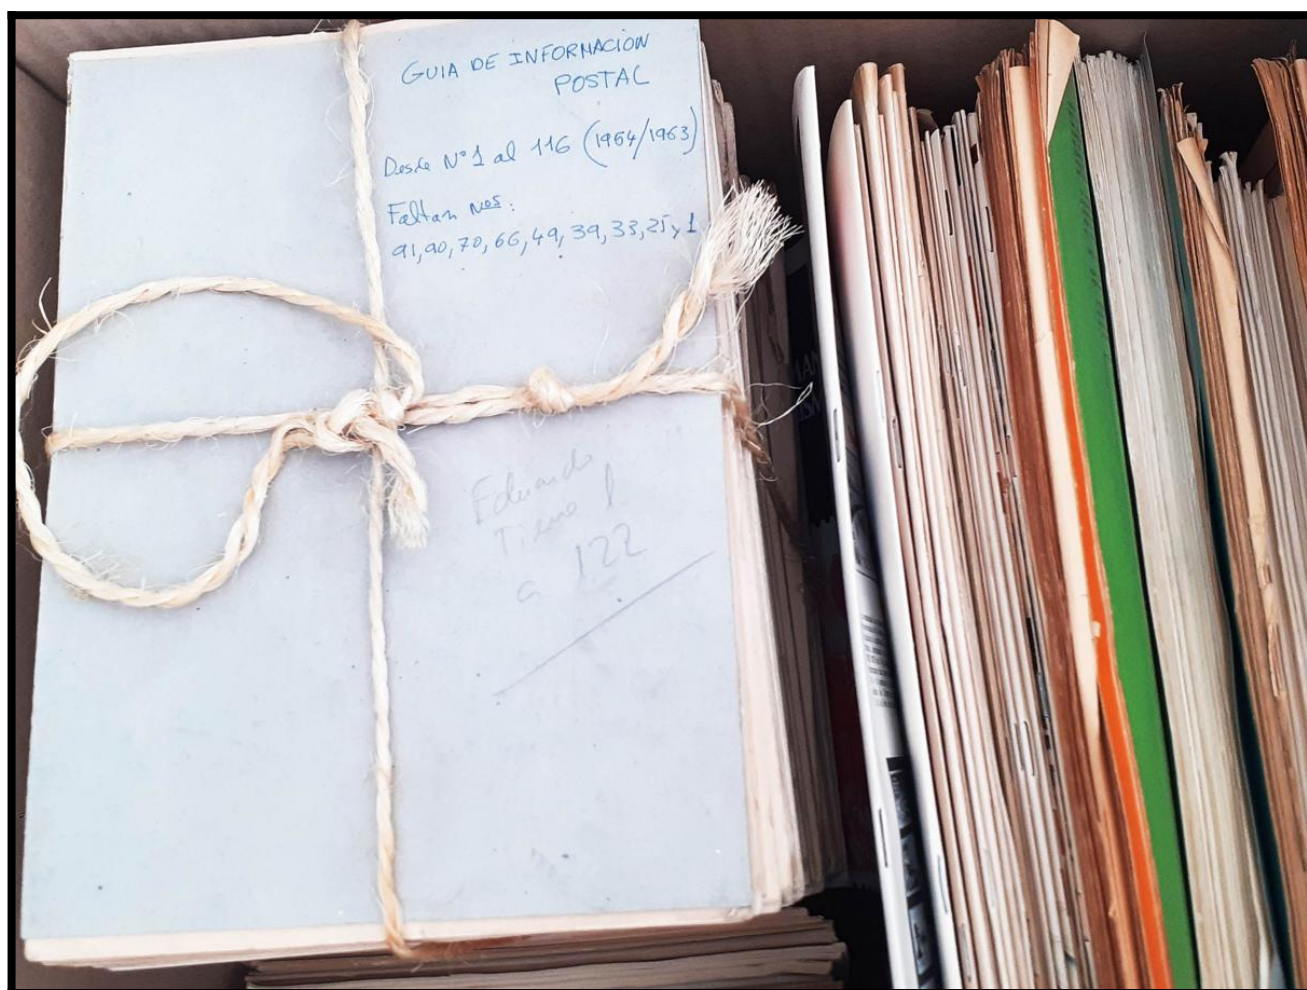 GUIA DE INFORMACION
POSTAL
Desde Nº 1 al 116 (1954/1963)
Faltan nos:
91, 90, 70, 66, 49, 39, 33, 25 y 1
Eduardo
a 122